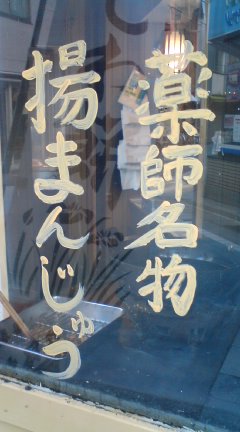 薬師名物
揚まんじゅう